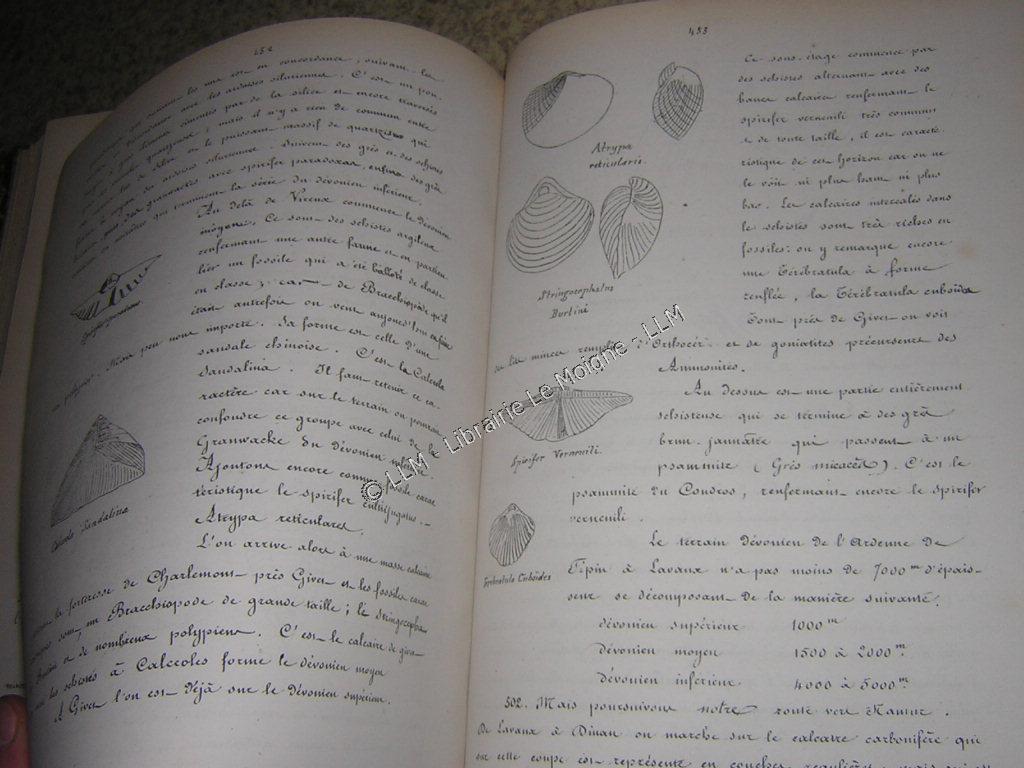 452
les uns est en concordance, suivant les
avec les ardoises siluriennes. C'est un pou-
cimentés par de la silice et encore traversés
quartzeuse; mais il n'y a rien de commun entre
de silex ou le puissant massif de quartzite qui
ardoises siluriennes. Suivent des grès et des schistes
avec spirifer paradoxus, enfin des grès
qui terminent la série du dévonien inférieur.
Au delà de Vireux commence le dévonien
moyen. Ce sont des schistes argileux
renfermant une autre faune et en particu
lier un fossile qui a été balloté de classe
en classe; car de Bracchiopode qu'il
était autrefois on veut aujourd'hui en faire
Mais peu nous importe. Sa forme est celle d'une
sandale chinoise. C'est la Calceola
Sandalina. Il faut retenir ce ca-
ractère car sur le terrain on pourrait
confondre ce groupe avec celui de la
Grauwacke du dévonien
Ajoutons encore comme fossile carac
téristique le spirifer
Atrypa reticulares.
L'on arrive alors à une masse calcaire
la forteresse de Charlemont près Givet et les fossiles carac
sont, un Bracchiopode de grande taille; le stringocepha
et de nombreux polypiers. C'est le calcaire de Givet
les schistes à Calceoles forme le dévonien moyen
A Givet l'on est déjà sur le dévonien supérieur.
Calceola Sandalina
453
Atrypa
reticularis.
Stringocephalus
Burtini
Spirifer Verneuili.
Terebratula Cuboïdes
Ce sous-étage commence par
des schistes alternant avec des
bancs calcaires renfermant le
spirifer verneuili très commun
et de toute taille, il est caracté
ristique de cet horizon car on ne
le voit ni plus haut ni plus
bas. Les calcaires intercalés dans
le schistes sont très riches en
fossiles: on y remarque encore
une Térébratula à forme
renflée, la Térébratula cuboïda
Tout près de Givet on voit
un lit mince rempli d'Orthocér. et de goniatites précurseurs des
Ammonites.
Au dessus est une partie entièrement
schisteuse qui se termine à des grès
brun-jaunâtre qui passent à un
psammite (Grès micacés). C'est le
psammite du Condros, renfermant encore le spirifer
verneuili.
Le terrain dévonien de l'Ardenne de
Fépin à Lavaux n'a pas moins de 7000m d'épais-
seur se décomposant de la manière suivante:
dévonien supérieur 1000m
dévonien moyen 1500 à 2000m.
dévonien inférieur 4000 à 5000m.
502. Mais poursuivons notre route vers Namur.
De Lavaux à Dinan on marche sur le calcaire carbonifère qui
sur cette coupe est représenté en couches régulières
© LLM - Librairie Le Moigne - LLM